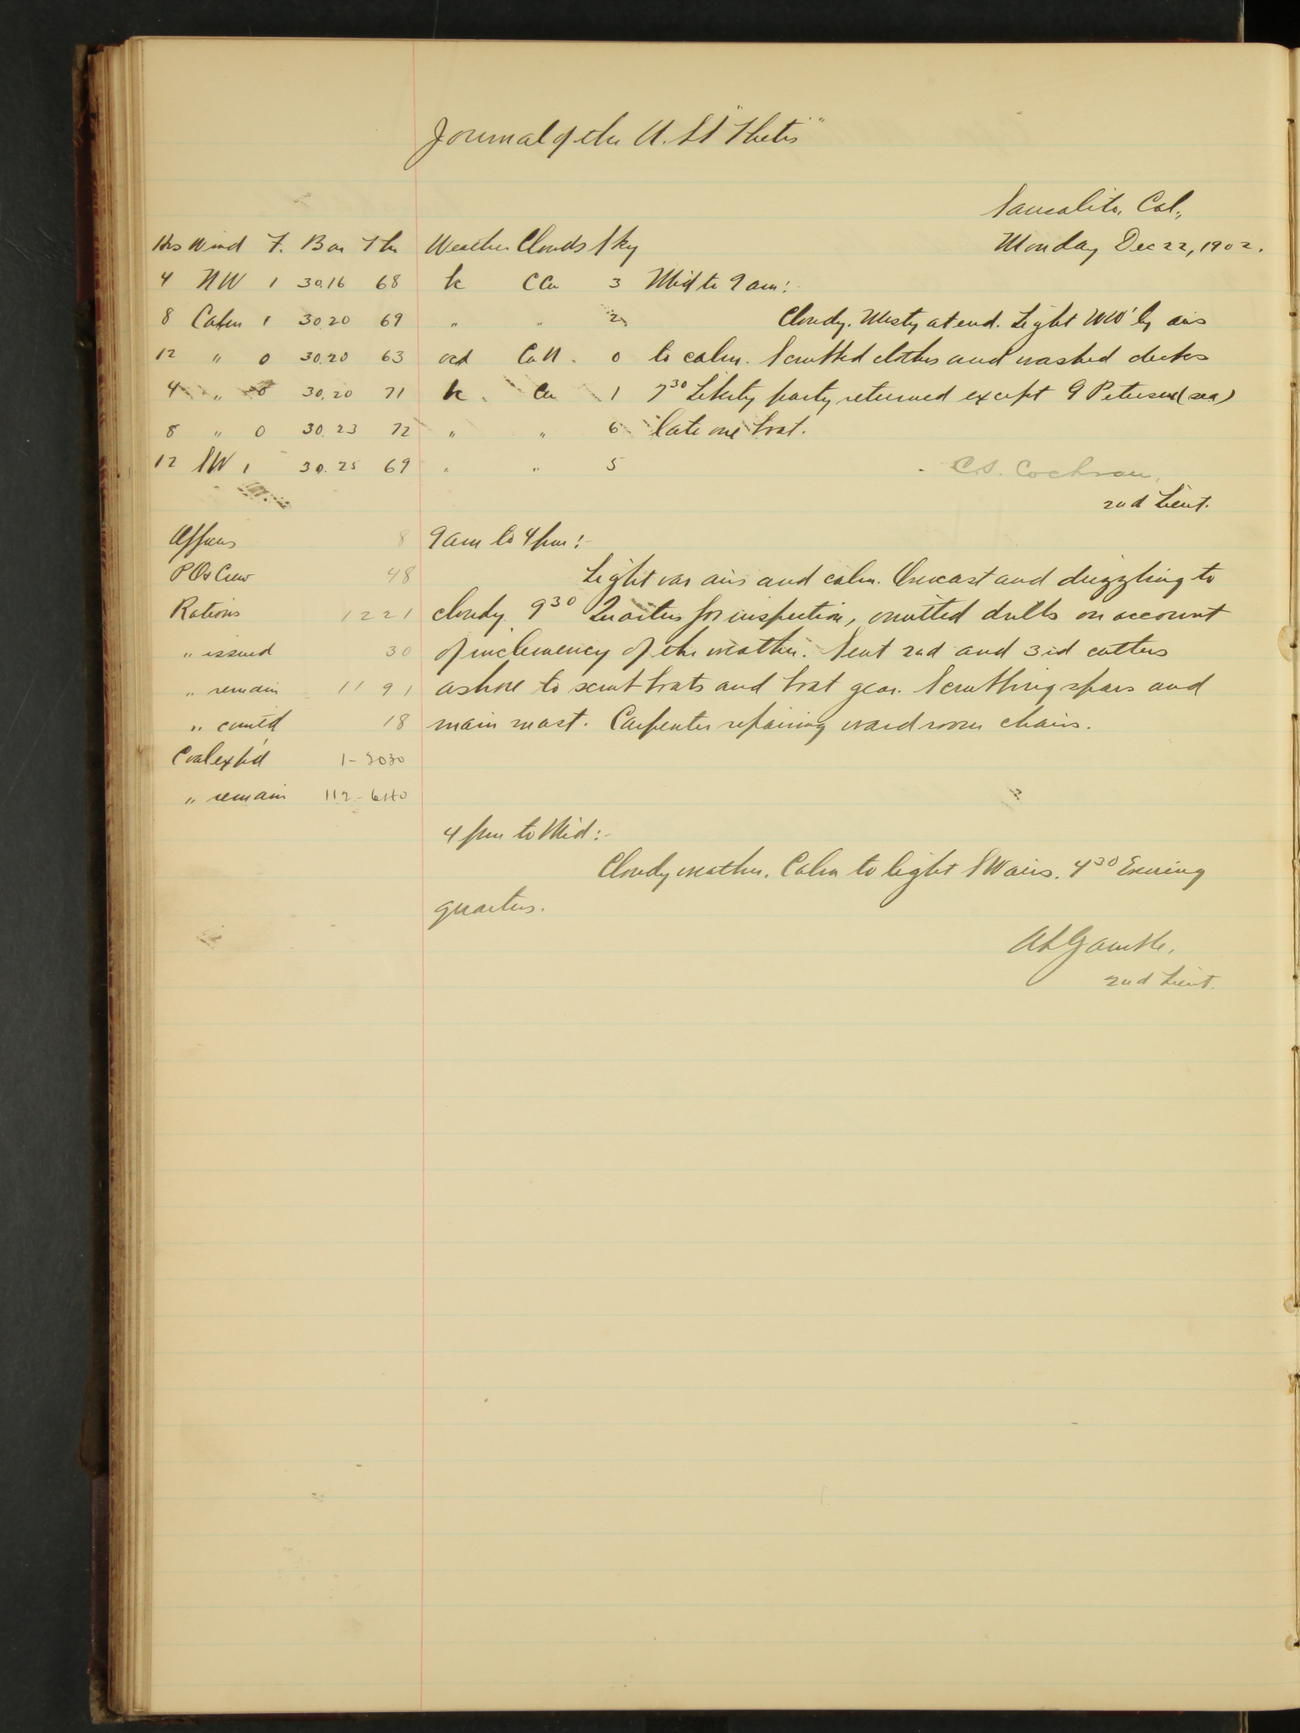 Journal of the U. S. S. "Thetis"
Sausalito, Cal.,
Hrs Wind F. Bar Ther Weather Clouds Sky Monday Dec 22, 1902.
4 NW 1 30.16 68 bc CCu 3 Mid to 9 am:-
8 Calm 1 30.20 69 " " 2 Cloudy. Misty at end. Light NW'ly airs
12 " 0 30.20 63 ocd CuN. 0 to calm. Scrubbed clothes and washed decks
4 " 0 30.20 71 bc. Cu 1 7 30 Liberty party returned except G Petersen (sea)
8 " 0 30.23 72 " " 6 late one boat.
12 SW 1 30.25 69 " " 5 C.S. Cochran,
2nd Lieut.
Officers 8 9 am to 4 pm:-
POs Crew 48 Light var airs and calm. Overcast and drizzling to
Rations 1221 cloudy. 9 30 Quarters for inspection, omitted drills on account
" issued 30 of inclemency of the weather. Sent 2nd and 3rd cutters
" remain 1191 ashore to scrub boats and boat gear. Scrubbing spars and
" com'td 18 main mast. Carpenter repairing wardroom chairs.
Coal exp'd 1-2030
" remain 112-
4 pm to Mid:-
Cloudy weather. Calm to light SW airs. 4 30 Evening
quarters.
Gamble,
2nd Lieut.